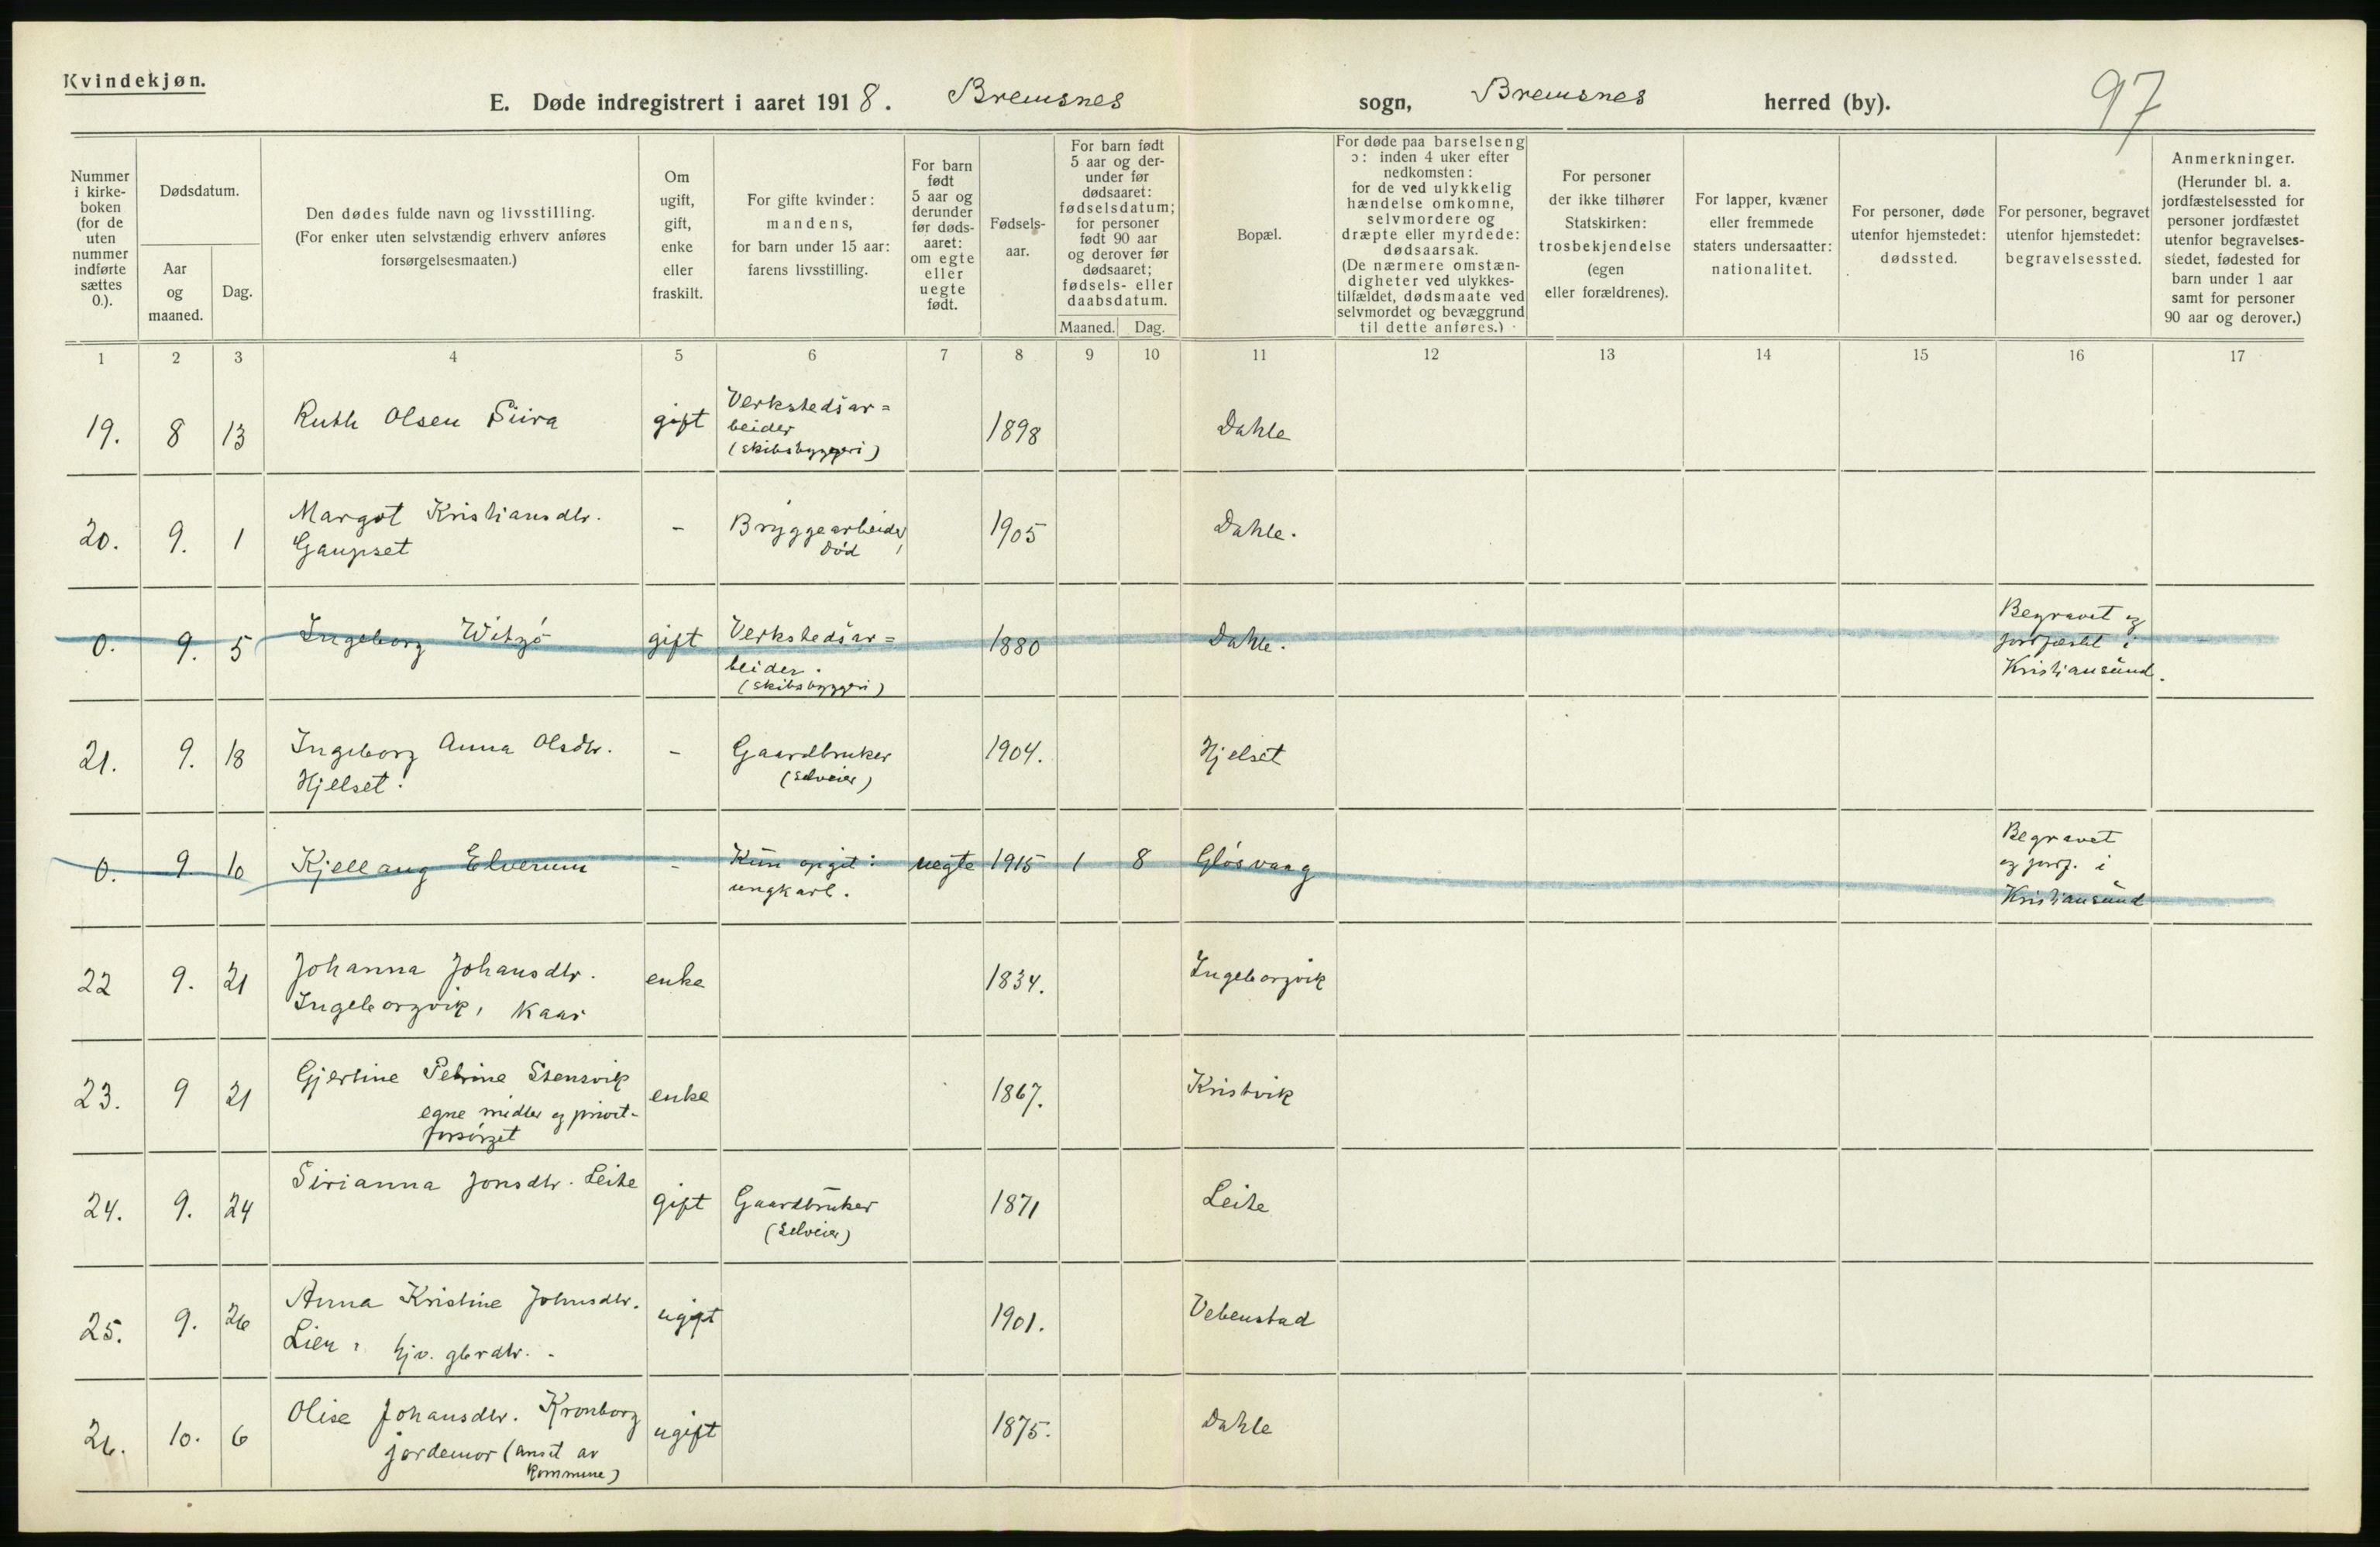 Kvindekjøn.
E. Døde indregistrert i aaret 1918. Bremsnes sogn, Bremsnes herred (by). 97
Nummer i kirkeboken (for de uten nummer indførte sættes 0.).
Dødsdatum.
Aar og maaned.
Dag.
Den dødes fulde navn og livsstilling.
(For enker uten selvstændig erhverv anføres
forsørgelsesmaaten.)
Om ugift, gift, enke eller fraskilt.
For gifte kvinder: mandens, for barn under 15 aar: farens livsstilling.
For barn født 5 aar og derunder før dødsaaret: om egte eller uegte født.
Fødselsaar.
For barn født 5 aar og derunder før dødsaaret: fødselsdatum; for personer født 90 aar og derover før dødsaaret; fødsels- eller daabsdatum.
Maaned. Dag.
Bopæl.
For døde paa barselseng ɔ: inden 4 uker efter nedkomsten: for de ved ulykkelig hændelse omkomne, selvmordere og dræpte eller myrdede: dødsaarsak. (De nærmere omstændigheter ved ulykkestilfældet, dødsmaate ved selvmordet og bevæggrund til dette anføres.)
For personer der ikke tilhører Statskirken: trosbekjendelse (egen eller forældrenes).
For lapper, kvæner eller fremmede staters undersaatter: nationalitet.
For personer, døde utenfor hjemstedet: dødssted.
For personer, begravet utenfor hjemstedet: begravelsessted.
Anmerkninger. (Herunder bl. a. jordfæstelsessted for personer jordfæstet utenfor begravelsesstedet, fødested for barn under 1 aar samt for personer 90 aar og derover.)
1 2 3 4 5 6 7 8 9 10 11 12 13 14 15 16 17
19. 8 13 Ruth Olsen Siira gift Verkstedsar=
beider
(skibsbyggeri) 1898 Dahle
20. 9. 1 Margot Kristiansdtr.
Gaupset - Bryggearbeider,
død 1905 Dahle.
0. 9. 5 Ingeborg Witzø gift Verkstedsar=
beider.
(skibsbyggeri) 1880 Dahle. Begravet og
jordfæstet i
Kristiansund.
21. 9. 18 Ingeborg Anna Olsdtr.
Hjelset. - Gaardbruker
(selveier) 1904. Hjelset
0. 9 10 Kjellaug Elverum - Kun opgit:
ungkarl. uegte 1915 1 8 Gløsvaag Begravet
og jordf. i
Kristiansund
22 9. 21 Johanna Johansdtr.
Ingeborgvik, Kaar enke 1834. Ingeborgvik
23. 9 21 Gjertine Petrine Stensvik
egne midler og privat-
forsørget enke 1867. Kristvik
24. 9. 24 Sirianna Jonsdtr. Leite gift Gaardbruker
(Selveier) 1871 Leite
25. 9. 26 Anna Kristine Johnsdtr.
Lien, hjv. gbrdtr. - ugift 1901. Vebenstad
26. 10. 6 Olise Johansdtr. Kronborg
jordemor (ansat av
Kommune) ugift 1875. Dahle